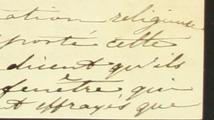 ation religieuse
porté cette
disent qu'ils
fenêtre, qui
t effrayés que